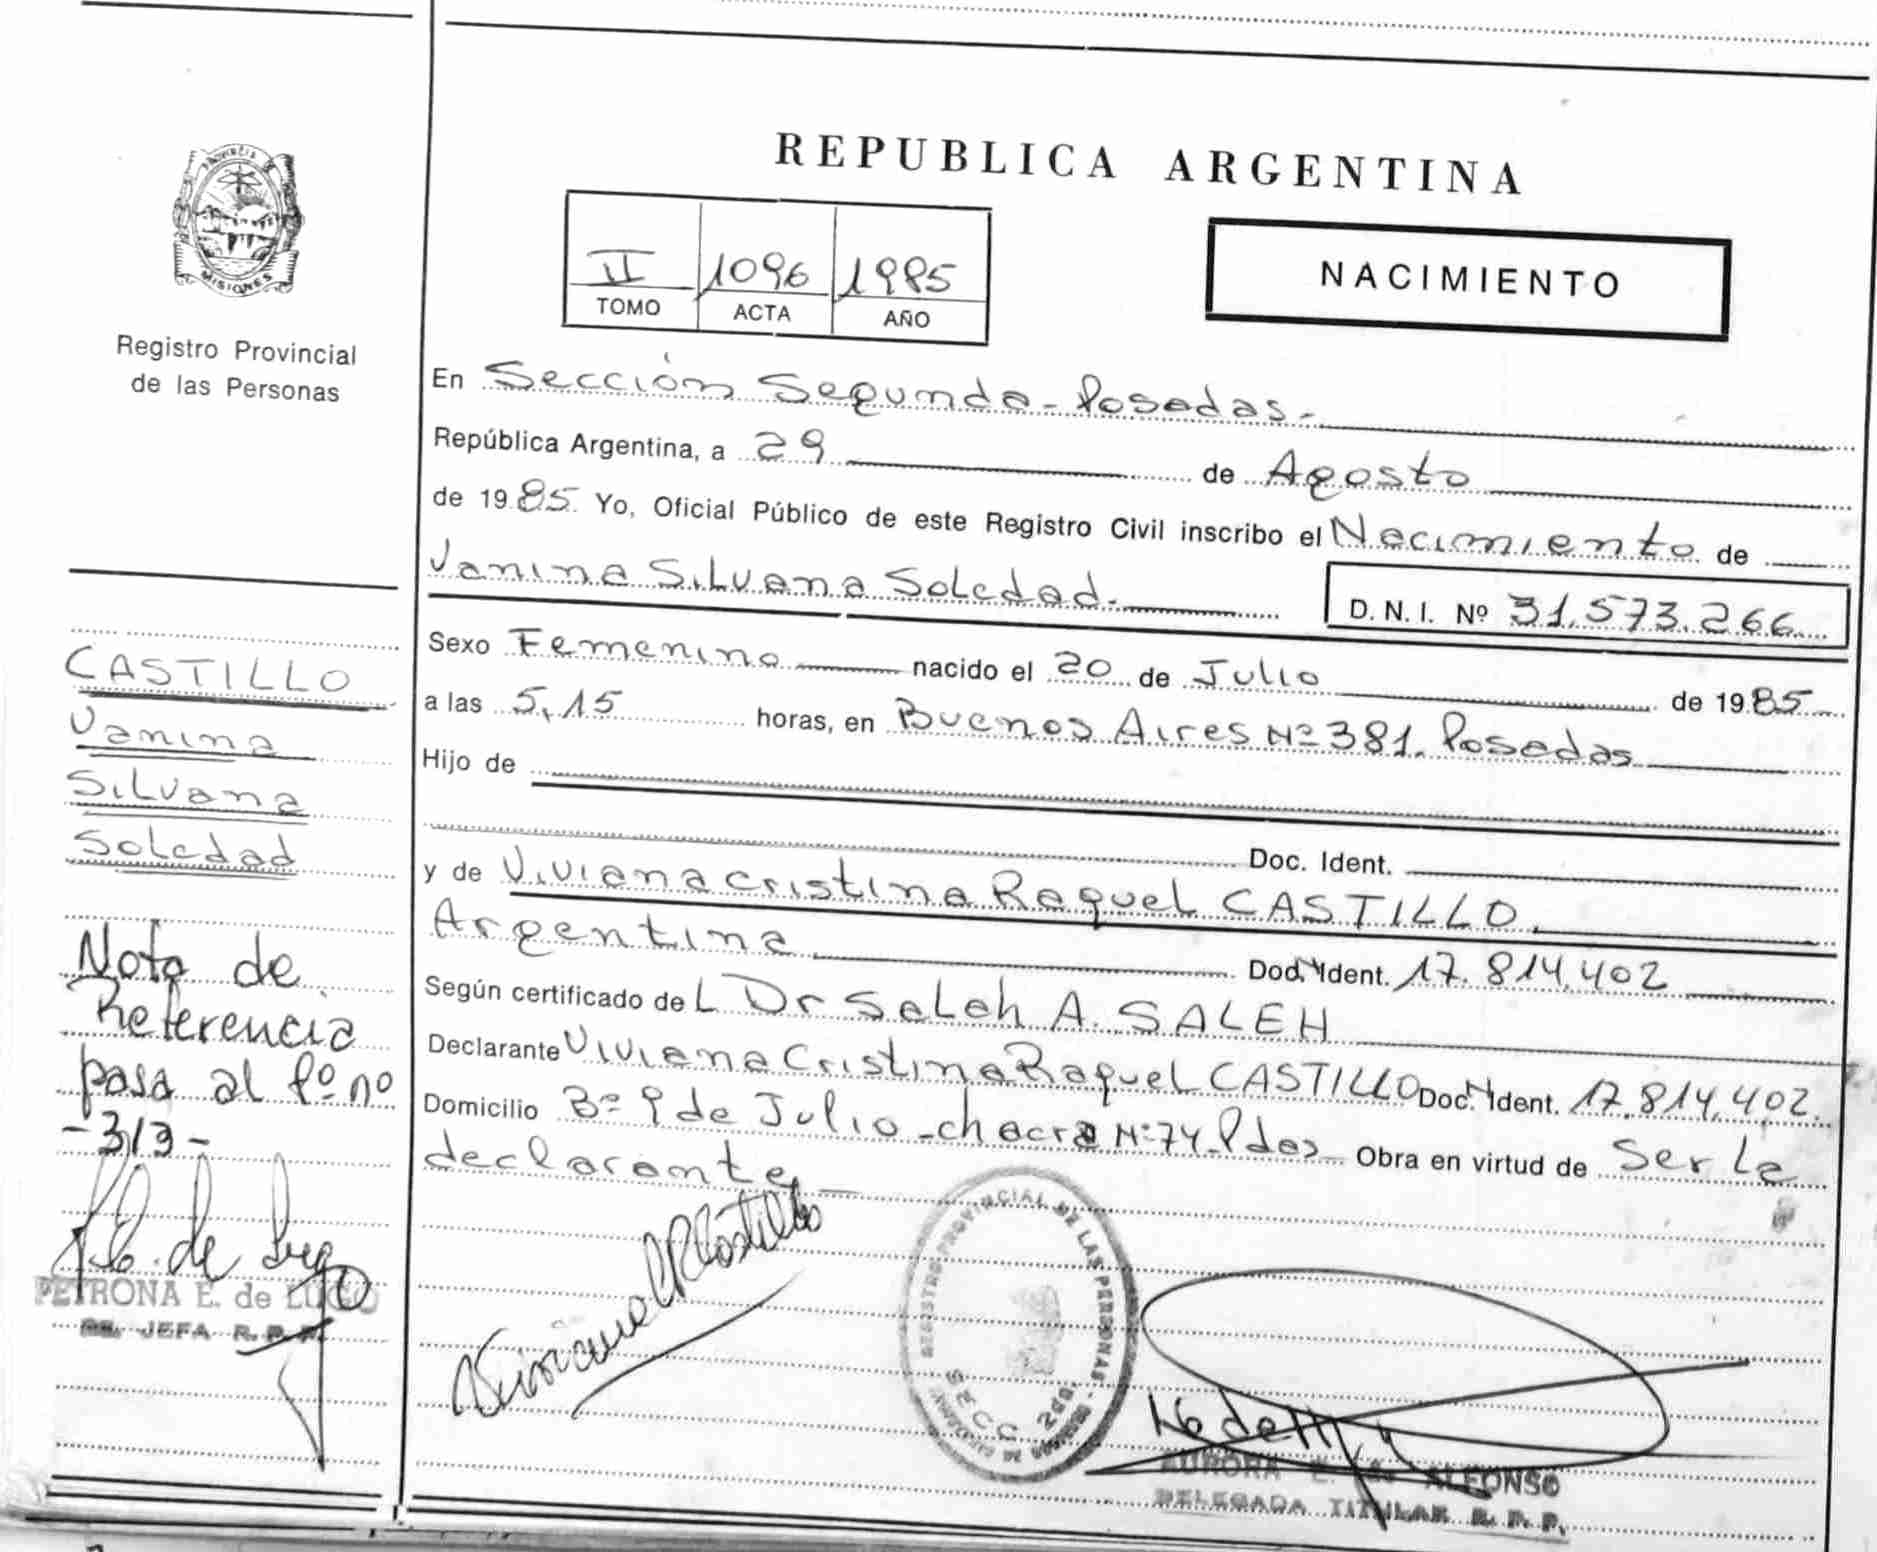 PROVINCIA DE
MISIONES
Registro Provincial
de las Personas
CASTILLO
Vanina
Silvana
Soledad
Nota de
Referencia
pasa al fº nº
-313-
PETRONA E. de LUGO
JEFA R. P. P.
REPUBLICA ARGENTINA
II 1096 1985
TOMO ACTA AÑO
NACIMIENTO
En Sección Segunda - Posadas -
República Argentina, a 29 de Agosto
de 1985. Yo, Oficial Público de este Registro Civil inscribo el Nacimiento de
Vanina Silvana Soledad. D. N. I. Nº 31.573.266
Sexo Femenino nacido el 20 de Julio de 1985
a las 5,15 horas, en Buenos Aires Nº 381. Posadas
Hijo de
Doc. Ident.
y de Viviana Cristina Raquel CASTILLO.
Argentina Doc. Ident. 17.814.402
Según certificado del Dr Saleh A. SALEH
Declarante Viviana Cristina Raquel CASTILLO Doc. Ident. 17.814.402.
Domicilio Bº 9 de Julio - chacra Nº 74 - Pdas Obra en virtud de Ser la
declarante -
Viviana CR Castillo
REGISTRO PROVINCIAL DE LAS PERSONAS
SECC. 2da.
AURORA E. de ALFONSO
DELEGADA TITULAR R. P. P.